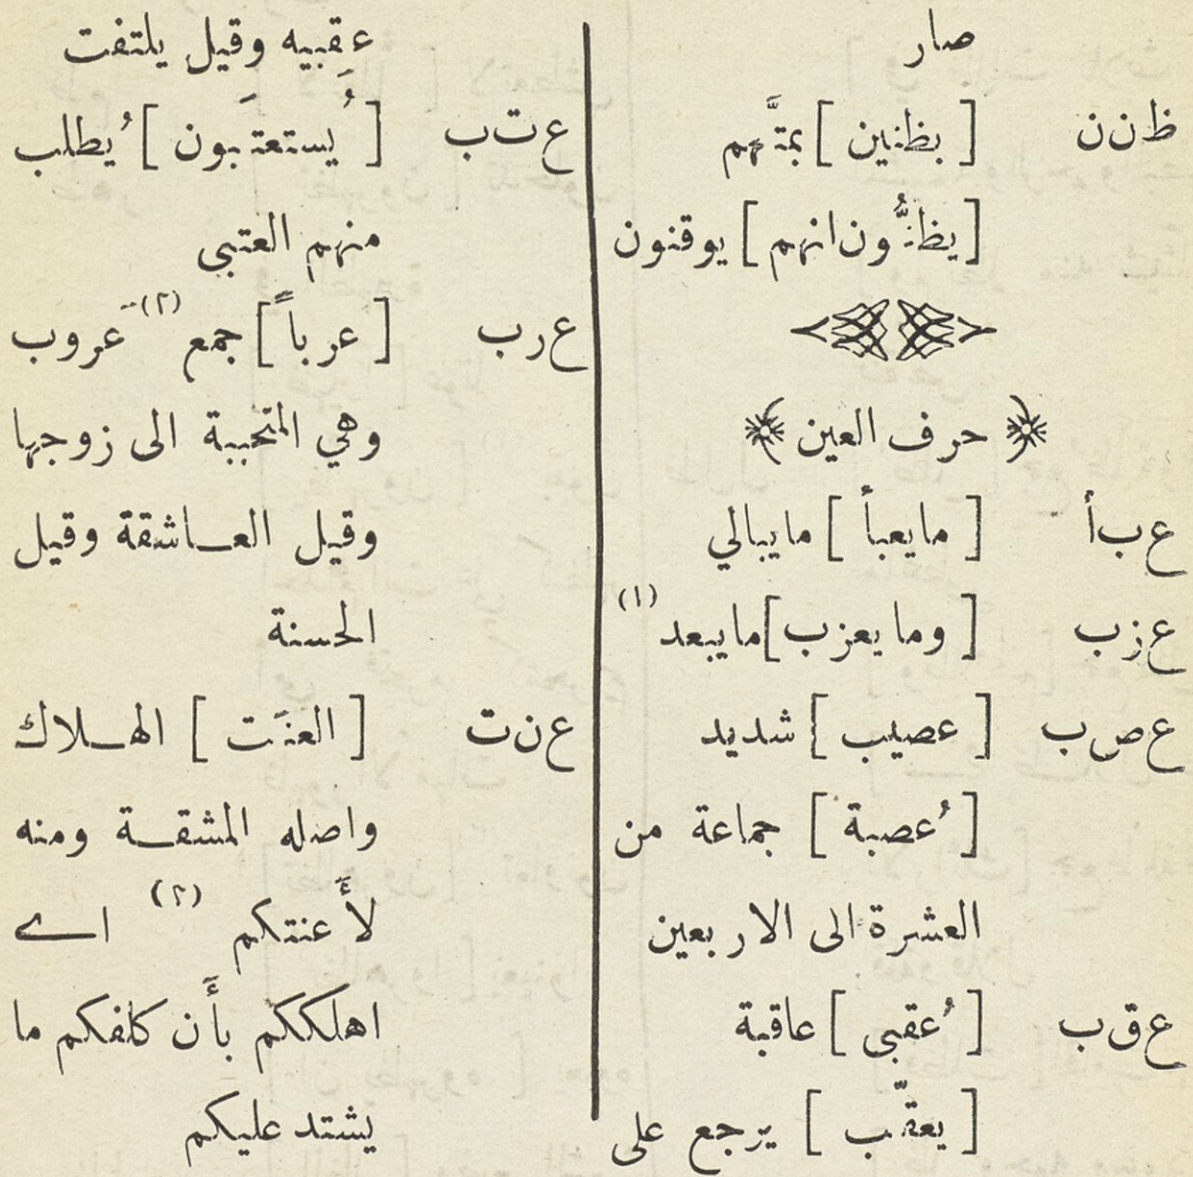 صار
ظ ن ن [ بظنين ] بمتَّهم
[ يظنُّون انهم ] يوقنون
﴿ حرف العين ﴾
ع ب أ [ مايعبأ ] مايبالي
ع ز ب [ وما يعزب ] مايبعد (١)
ع ص ب [ عصيب ] شديد
[ عُصبة ] جماعة من
العشرة الى الاربعين
ع ق ب [ عُقبى ] عاقبة
[ يعقّب ] يرجع على
عَقبيه وقيل يلتفت
ع ت ب [ يُستعتَبون ] يُطلب
منهم العتبى
ع ر ب [ عرباً ] جمع (٢) عَروب
وهي المتحببة الى زوجها
وقيل العـاشقة وقيل
الحسنة
ع ن ت [ العنَت ] الهـلاك
واصله المشقـة ومنه
لأَعنتكم (٢) اے
اهلككم بأَن كلفكم ما
يشتد عليكم